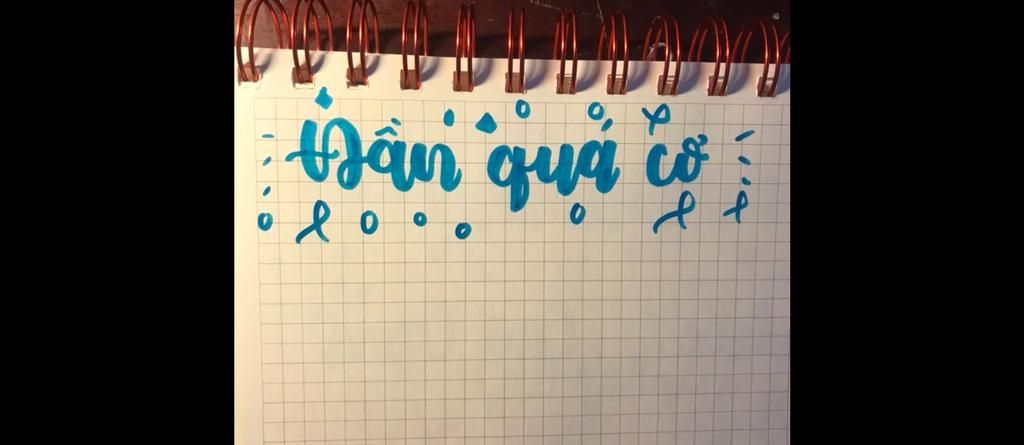 Đần quá cơ